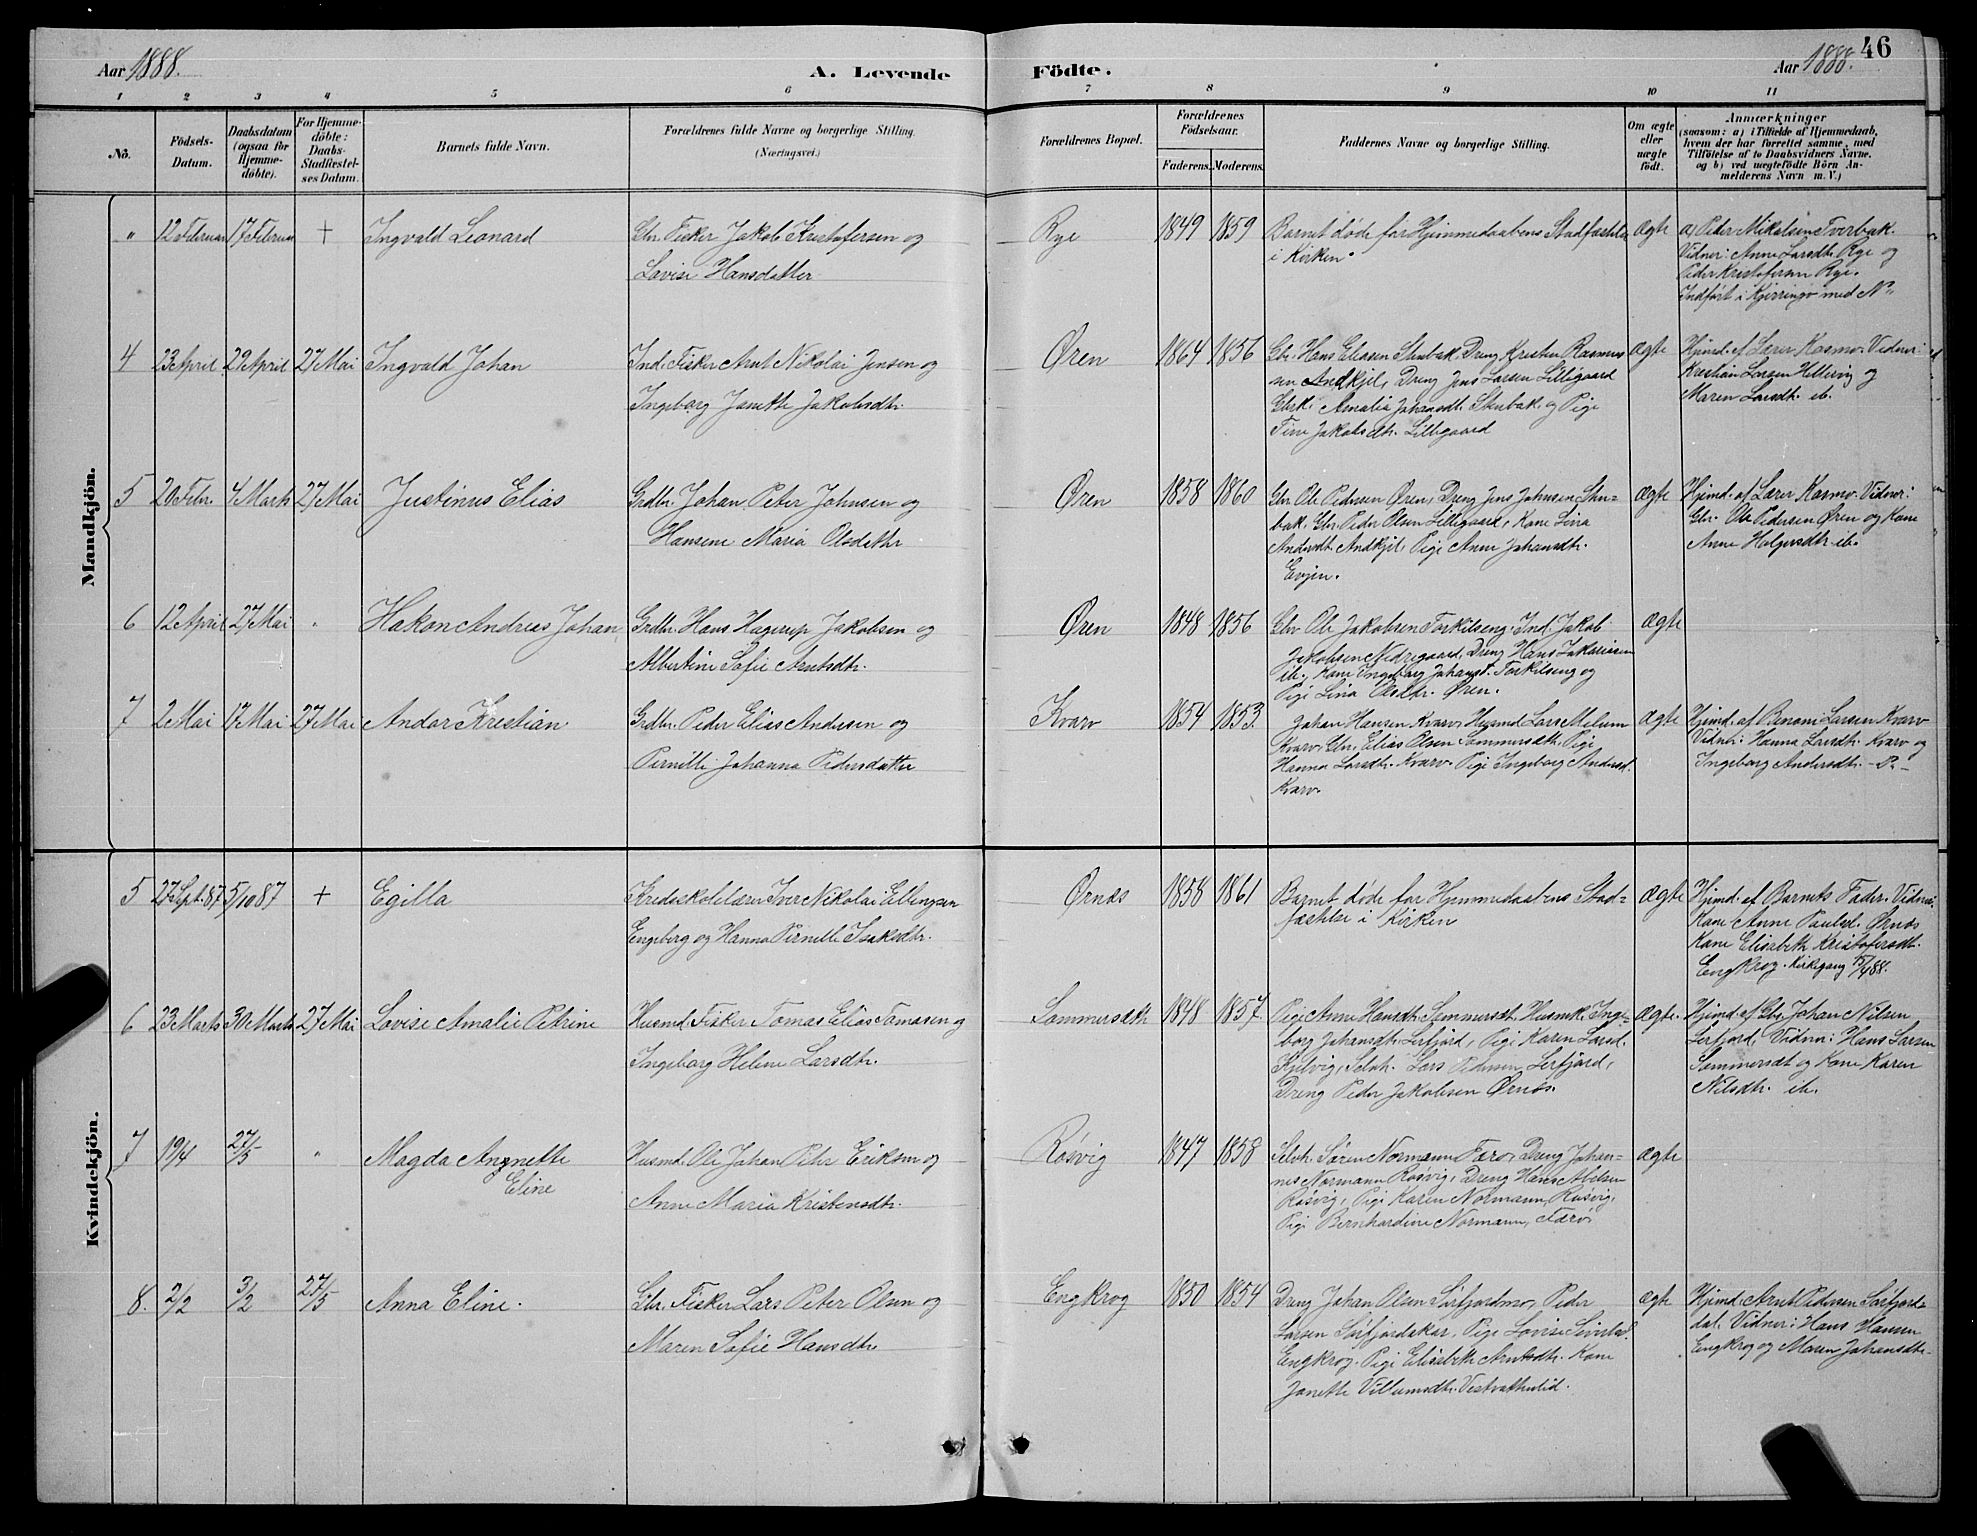 Aar 1888.
A. Levende
Födte.
Aar 1888.
46
1 2 3 4 5 6 7 8 9 10 11
No.
Födsels-Datum.
Daabsdatum (ogsaa for Hjemme-döbte).
For Hjemme-döbte: Daabs-Stadfæstel-ses Datum.
Barnets fulde Navn.
Forældrenes fulde Navne og borgerlige Stilling. (Næringsvei.)
Forældrenes Bopæl.
Forældrenes Födselsaar.
Faderens. Moderens.
Faddernes Navne og borgerlige Stilling.
Om ægte eller uægte födt.
Anmærkninger
(saasom: a) i Tilfælde af Hjemmedaab,
hvem der har forrettet samme, med
Tilföielse af to Daabsvidners Navne.
og b) ved uægtefödte Börn An-
melderens Navn m. V.)
Mandkjön.
" 12 Februar 17 Februar + Ingvald Leonard
Gbr. Fisker Jakob Kristofersen og
Lovise Hansdatter
Rye 1849 1859
Barnet døde før Hjemmedaabens Stadfæstelse
i Kirken.
ægte
a) Peder Mikalsen Tverbak.
Vidner: Anne Larsdtr. Rye og
Peder Kristofersen Rye.
Indført i Kjerringø med No
4 23 April 29 April 27 Mai Ingvald Johan
Ind. Fisker Arnt Nikolai Jensen og
Ingeborg Janette Jakobsdtr.
Øren 1864 1856
Gbr. Hans Eliasen Stenbak, Dreng Kristen Rasmus
sen Andkjil, Dreng Jens Larsen Lillegaard
Gbrk. Amalia Johansdtr. Stenbak og Pige
Tine Jakobsdtr. Lillegaard
ægte
Hjmd. af Lærer Kosmo. Vidner:
Kristian Larsen Hellevig og
Maren Larsdtr. ib.
5 20 Febr. 4 Marts 27 Mai Justinus Elias
Grdbr. Johan Peter Johnsen og
Hansine Maria Olsdattr
Øren 1858 1860
Gbr. Ole Pedersen Øren, Dreng Jens Johnsen Sten=
bak, Gbr. Peder Olsen Lillegaard, Kone Lina
Andersdt. Andkjil, Pige Anne Johansdtr.
Evjen.
ægte
Hjemd. af Lærer Kosmo. Vidner:
Gbr. Ole Pedersen Øren og Kone
Anne Holgersdtr. ib.
6 12 April 27 Mai " Hakon Andreas Johan
Grdbr. Hans Hagerup Jakobsen og
Albertine Sofie Arntsdtr.
Øren 1848 1856
Gbr Ole Jakobsen Torkilseng, Ind. Jakob
Jakobsen Nedregaard, Dreng Hans Zakariasen
ib., Kone Ingeborg Johansd. Torkilseng og
Pige Lina Olsdtr. Øren.
ægte
7 2 Mai 17 Mai 27 Mai Andor Kristian
Grdbr. Peder Elias Andersen og
Pernille Johanna Pedersdatter
Kvarv 1854 1853.
Johan Hansen Kvarv, Husmd. Lars Melum
Kvarv, Gbr. Elias Olsen Sommersæth, Pige
Hanna Larsdtr. Kvarv. Pige Ingeborg Andersd.
Kvarv.
ægte
Hjmd. af Benoni Larsen Kvarv
Vidner: Hanna Larsdtr. Kvarv og
Ingeborg Andersdtr.
Kvindekjön.
5 27 Sept. 87 5/10 87 + Egilla
Kredsskolelærer Iver Nikolai Ellingsen
Engeberg og Hanna Pernille Isaksdtr.
Ørnæs 1858 1861
Barnet døde før Hjemmedaabens Stad=
fæstelse i Kirken
ægte
Hjmd. af Barnets Fader. Vidner.
Kone Anne Paulsd. Ørnæs
Kone Elisabeth Kristofersdtr.
Engkrog. Kirkegang 15/4 88.
6 23 Marts 30 Marts 27 Mai Lovise Amalie Petrine
Husmd. Fisker Tomas Elias Tomasen og
Ingeborg Helene Larsdtr.
Sommersæth 1848 1857.
Pige Anne Hansdtr. Sommersdt. Husmk. Inge=
borg Johansdtr. Lerfjord, Pige Karen Larsd.
Kjelvig, Selvh. Lars Pedersen Lerfjord,
Dreng Peder Jakobsen Ørnæs.
ægte.
Hjmd. af Gbr. Johan Nilsen
Lerfjord, Vidner: Hans Larsen
Sommersæt og Kone Karen
Nilsdtr. ib.
7 19/4 27/5 " Magda Angnette
Eline
Husmd. Ole Johan Peter Eriksen og
Anne Maria Kristensdtr.
Røsvig 1847 1858
Selvh. Søren Normann Færø, Dreng Johan-
nes Normann Røsvig, Dreng Hans Abelsen
Røsvig, Pige Karen Normann, Røsvig,
Pige Bernhardine Normann, Færø.
ægte
8. 2/2 3/2 27/5 Anna Eline.
Gbr. Fisker Lars Peter Olsen og
Maren Sofie Hansdtr
Engkrog 1850 1854
Dreng Johan Olsen Sørfjordmo, Peder
Larsen Sørfjordskar, Pige Lovise
Engkrog. Pige Elisabeth Arntsdtr. Kone
Janette Villumsdtr.
ægte
Hjmd. Arnt Pedersen Sørfjord=
dal. Vidner: Hans Hansen
Engkrog og Maren Johansdtr.